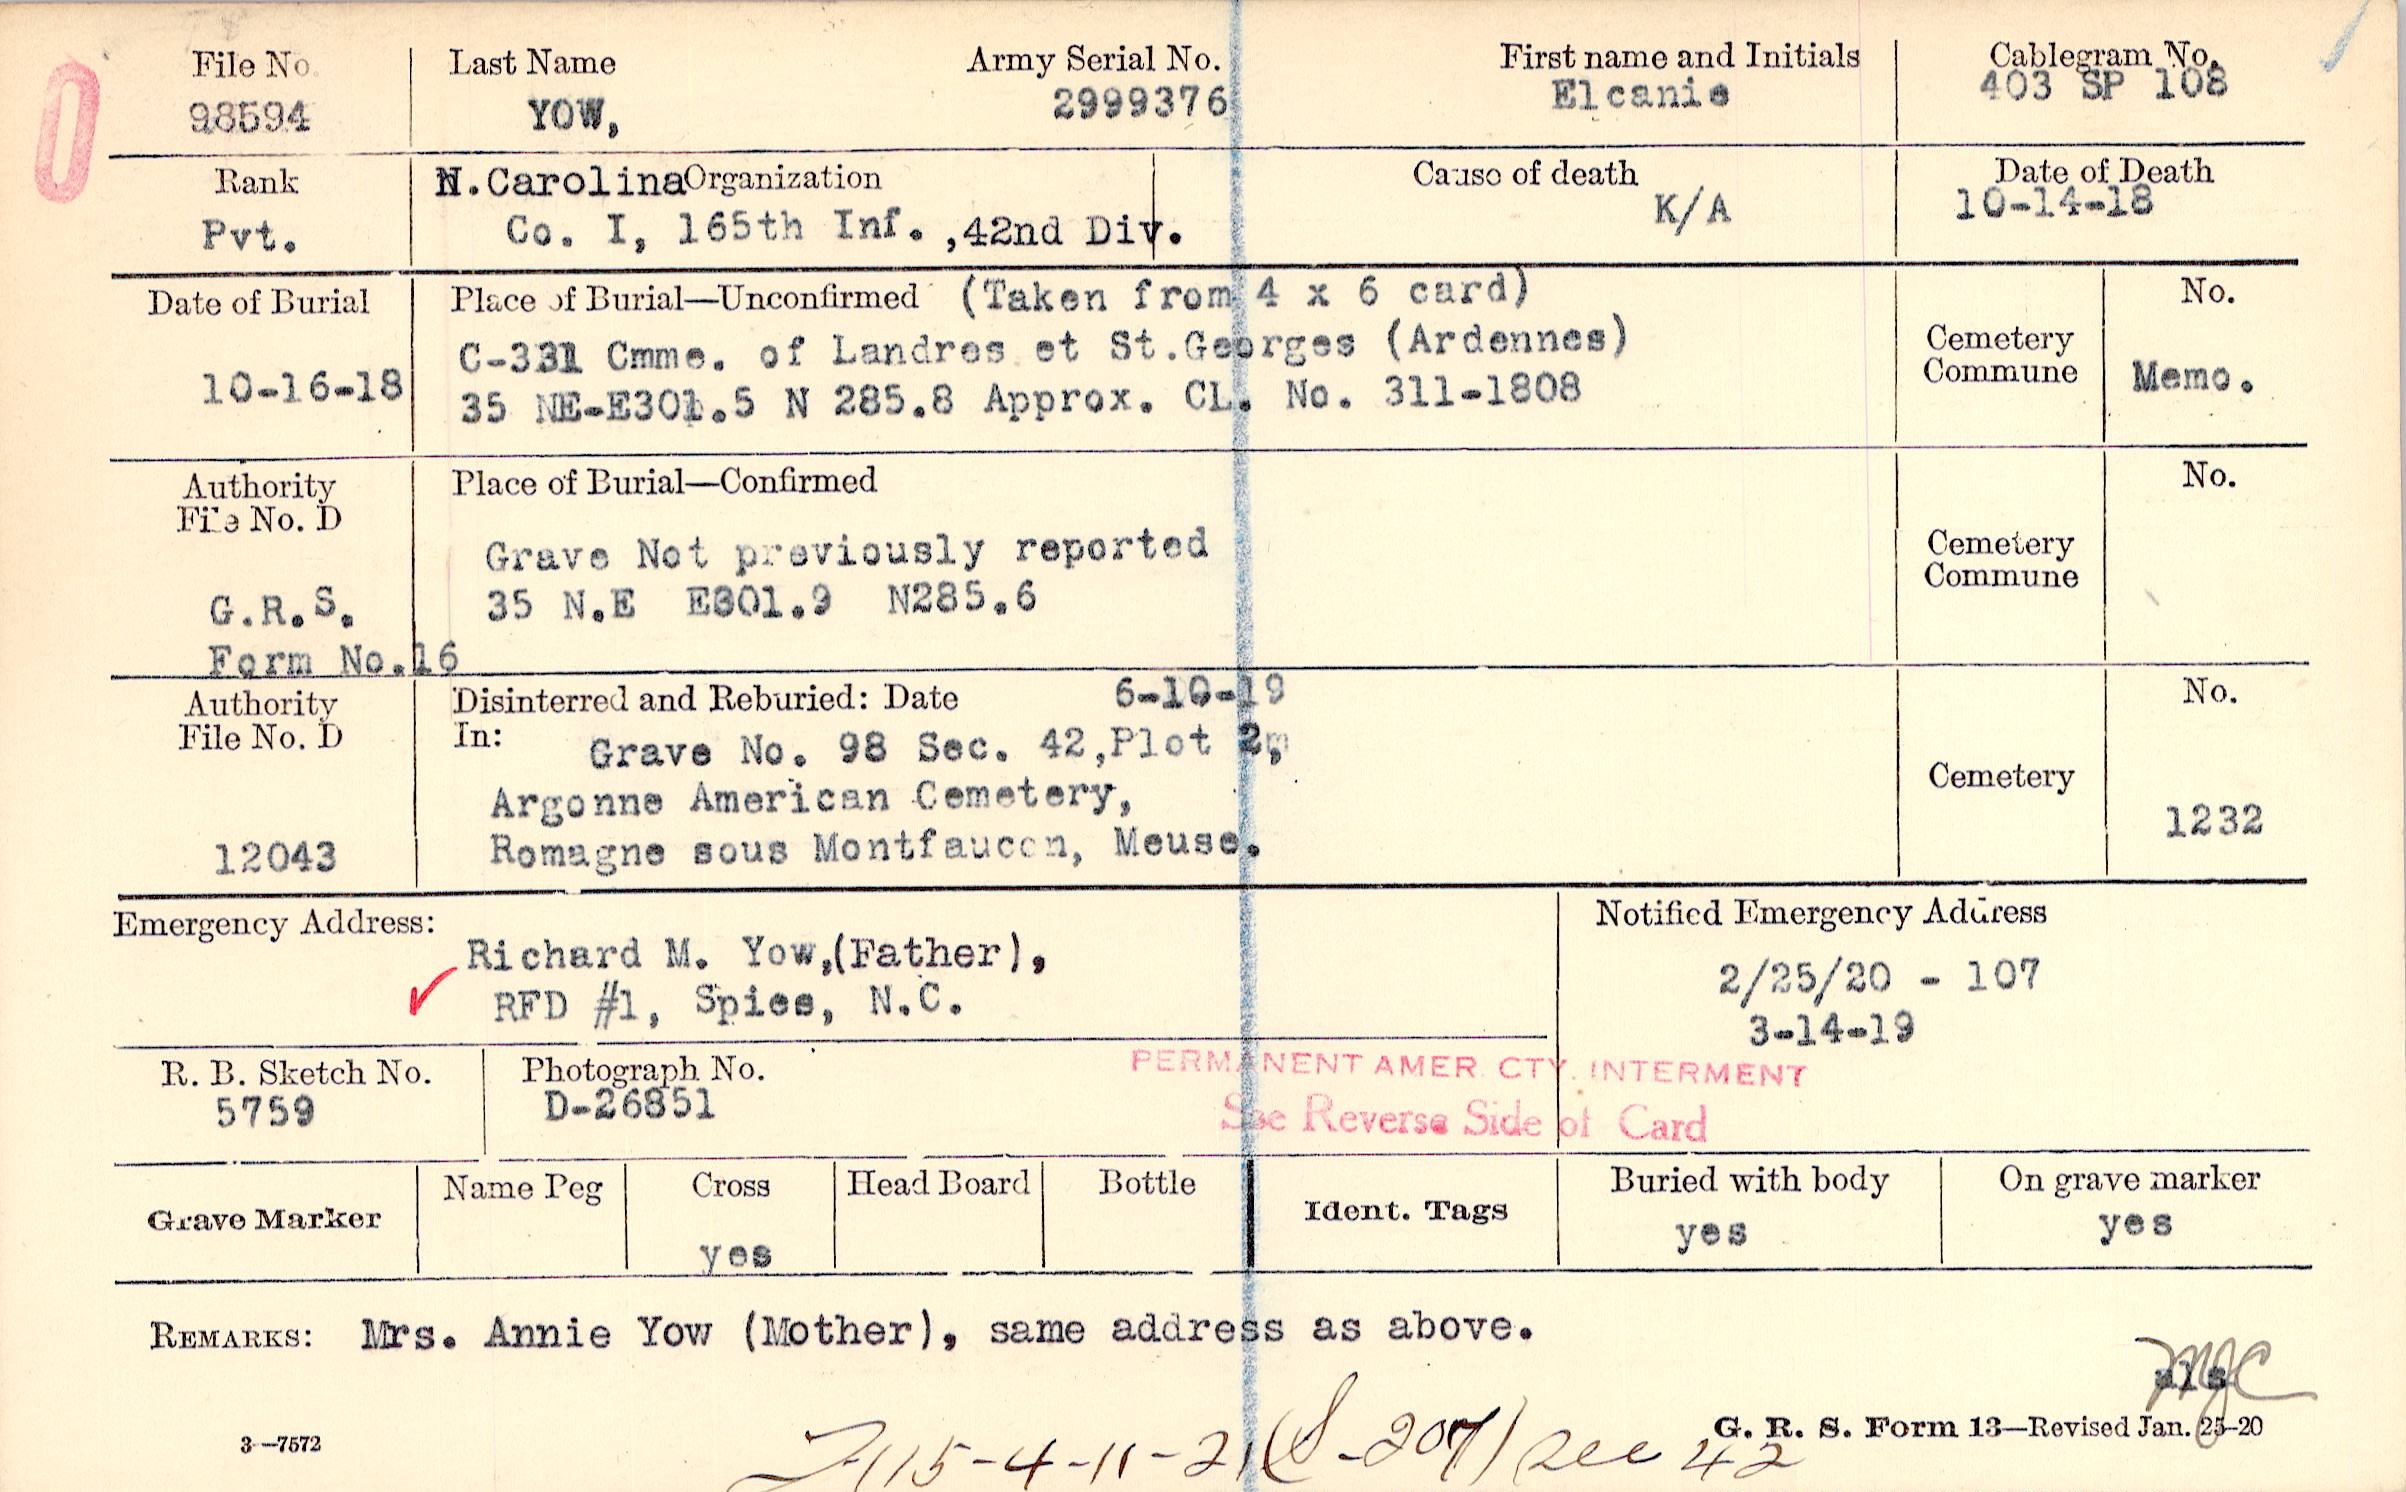 File No. Last Name Army Serial No. First name and Initials Cablegram No.
98594 YOW, 2999376 Elcanie 403 SP 108
Rank N.Carolina Organization Cause of death Date of Death
Pvt. Co. I, 165th Inf. ,42nd Div. K/A 10-14-18
Date of Burial Place of Burial—Unconfirmed (Taken from 4 x 6 card) No.
C-331 Cmme. of Landres et St.Georges (Ardennes) Cemetery Commune
10-16-18 35 NE-E301.5 N 285.8 Approx. CL. No. 311-1808 Memo.
Authority Place of Burial—Confirmed No.
File No. D
Grave Not previously reported Cemetery Commune
G.R.S. 35 N.E E301.9 N285.6
Form No.16
Authority Disinterred and Reburied: Date 6-10-19 No.
File No. D In: Grave No. 98 Sec. 42,Plot 2,
Argonne American Cemetery, Cemetery
12043 Romagne sous Montfaucon, Meuse. 1232
Emergency Address: Notified Emergency Address
Richard M. Yow,(Father), 2/25/20 - 107
RFD #1, Spies, N.C. 3-14-19
R. B. Sketch No. Photograph No. PERMANENT AMER. CTY. INTERMENT
5759 D-26851 See Reverse Side of Card
Grave Marker Name Peg Cross Head Board Bottle Ident. Tags Buried with body On grave marker
yes yes yes
REMARKS: Mrs. Annie Yow (Mother), same address as above.
3—7572 G. R. S. Form 13—Revised Jan. 25-20
115-4-11-21 (S-207) Sec 42